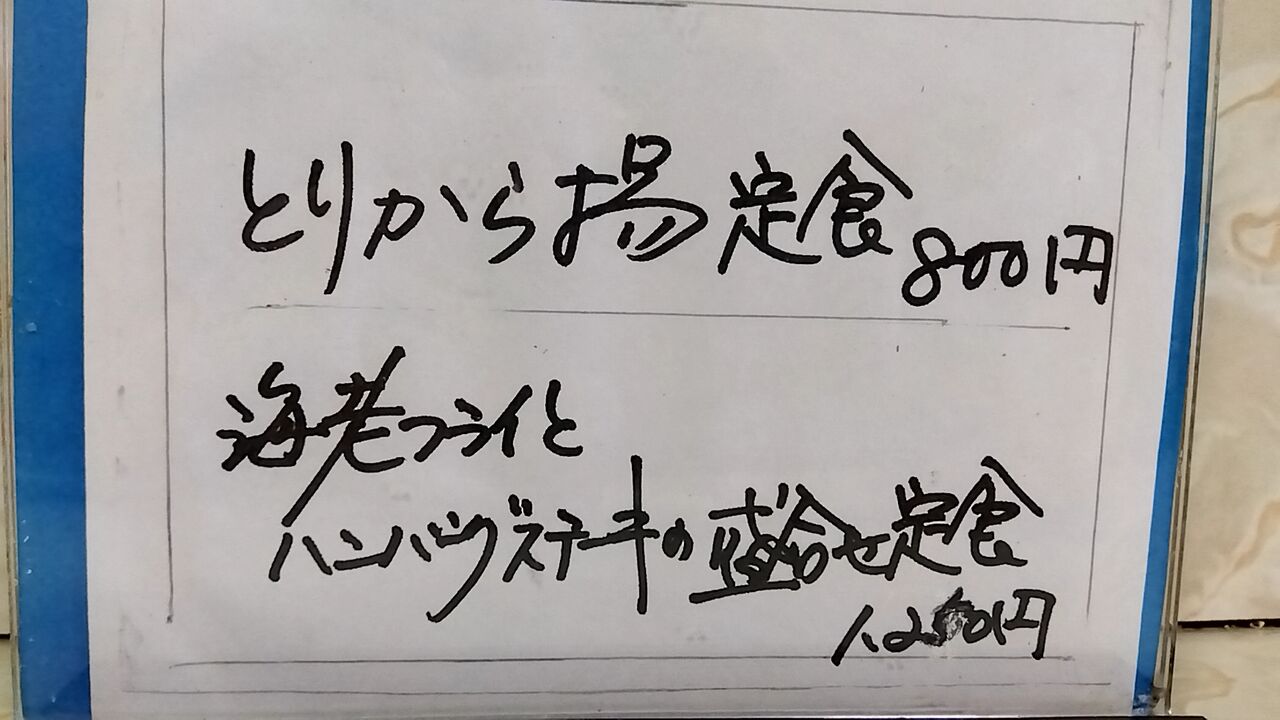 とりから揚定食
800円
海老フライと
ハンバーグステーキの盛合せ定食
1,250円